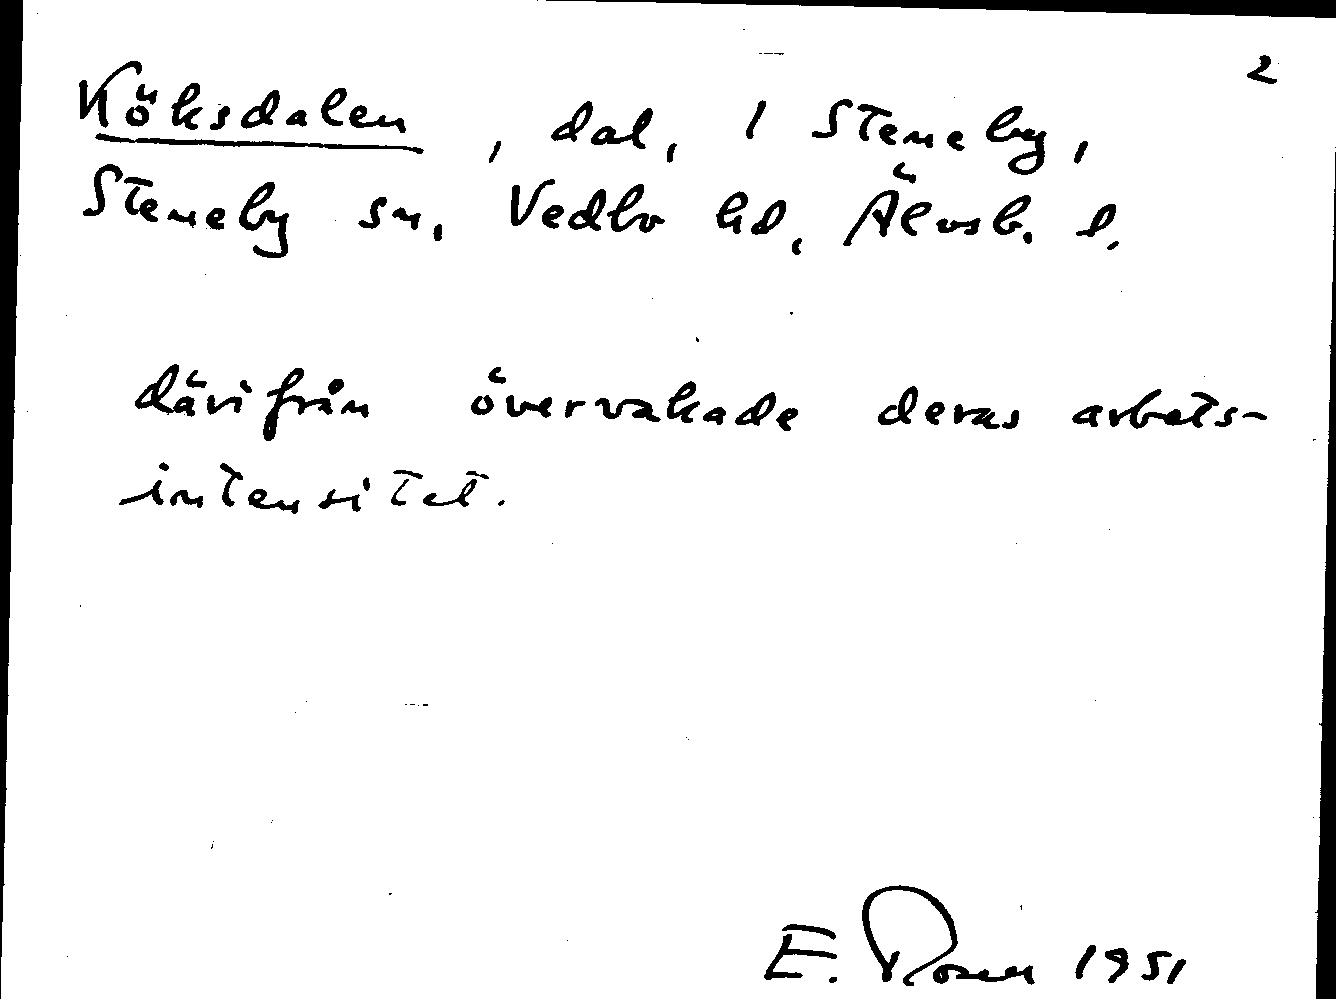 2
Köksdalen, dal, 1 Steneby,
Steneby sn, Vedbo hd, Älvsb. l.
därifrån övervakade deras arbets-
intensitet.
E. Rosen 1951